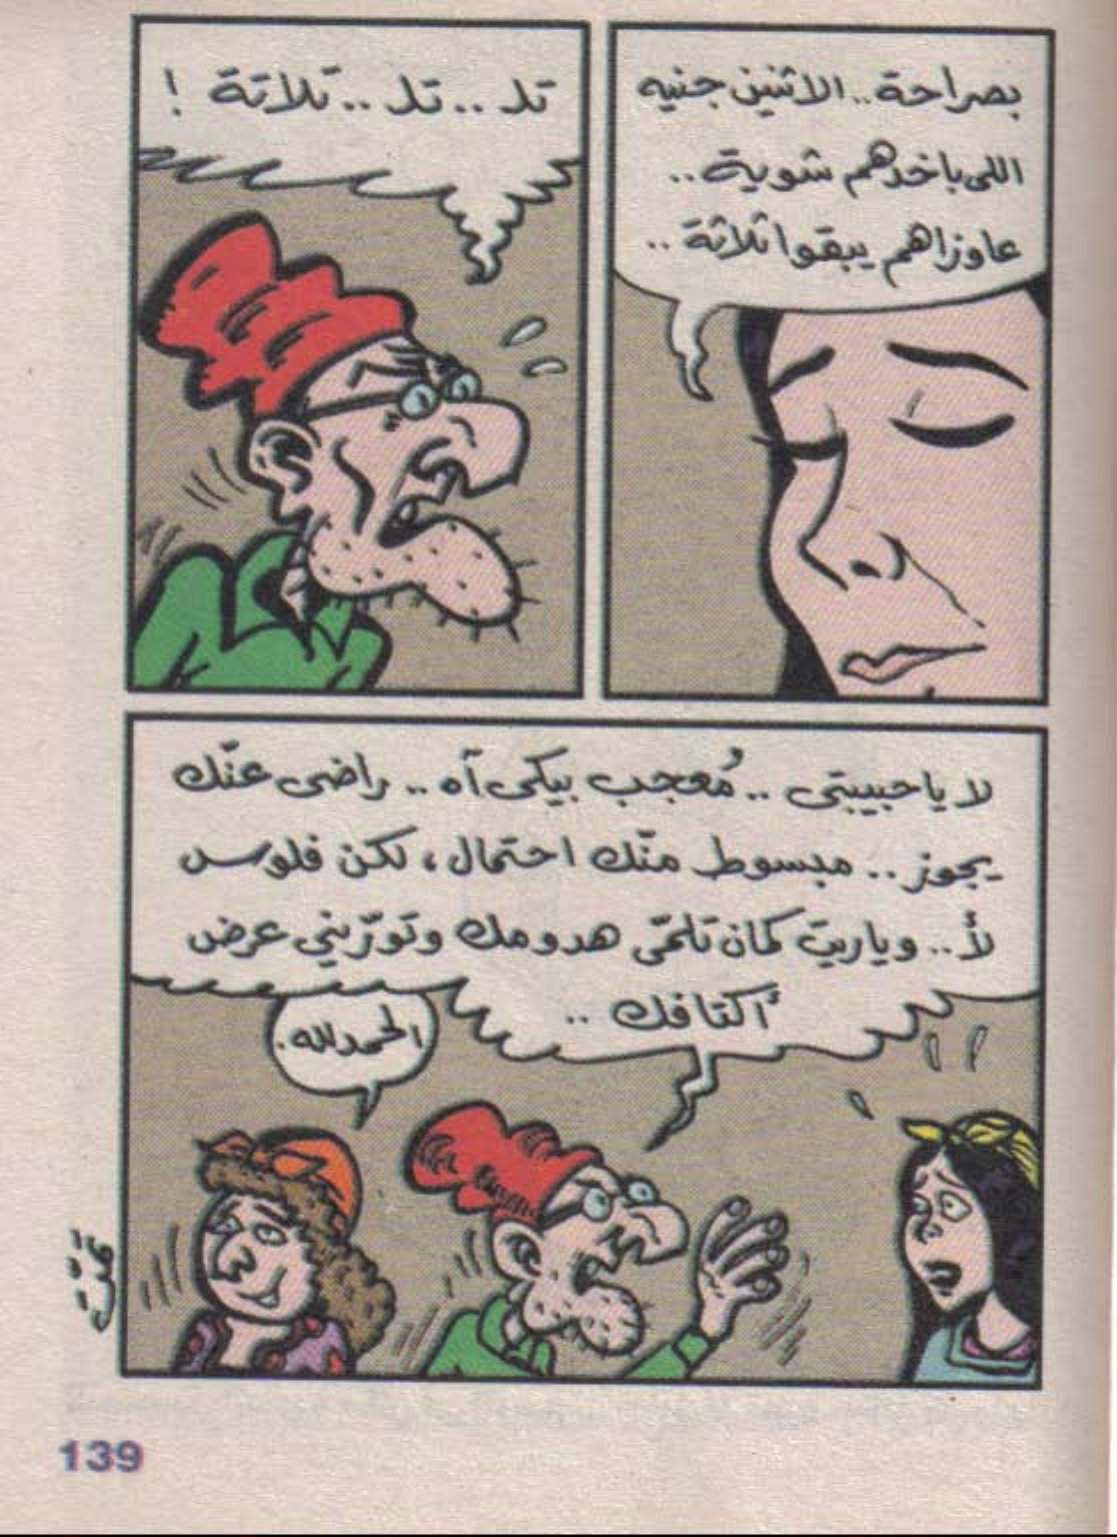 بصراحة.. الاثنين جنيه
اللى باخدهم شوية..
عاوزاهم يبقوا ثلاثة..
تلـ.. تلـ.. تلاتة !
لا ياحبيبتى.. مُعجب بيكى آه.. راضى عنّك
يجوز.. مبسوط منّك احتمال، لكن فلوس
لأ.. وياريت كمان تلمّى هدومك وتورّينى عرض
أكتافك..
الحمدلله.
تمّت
139